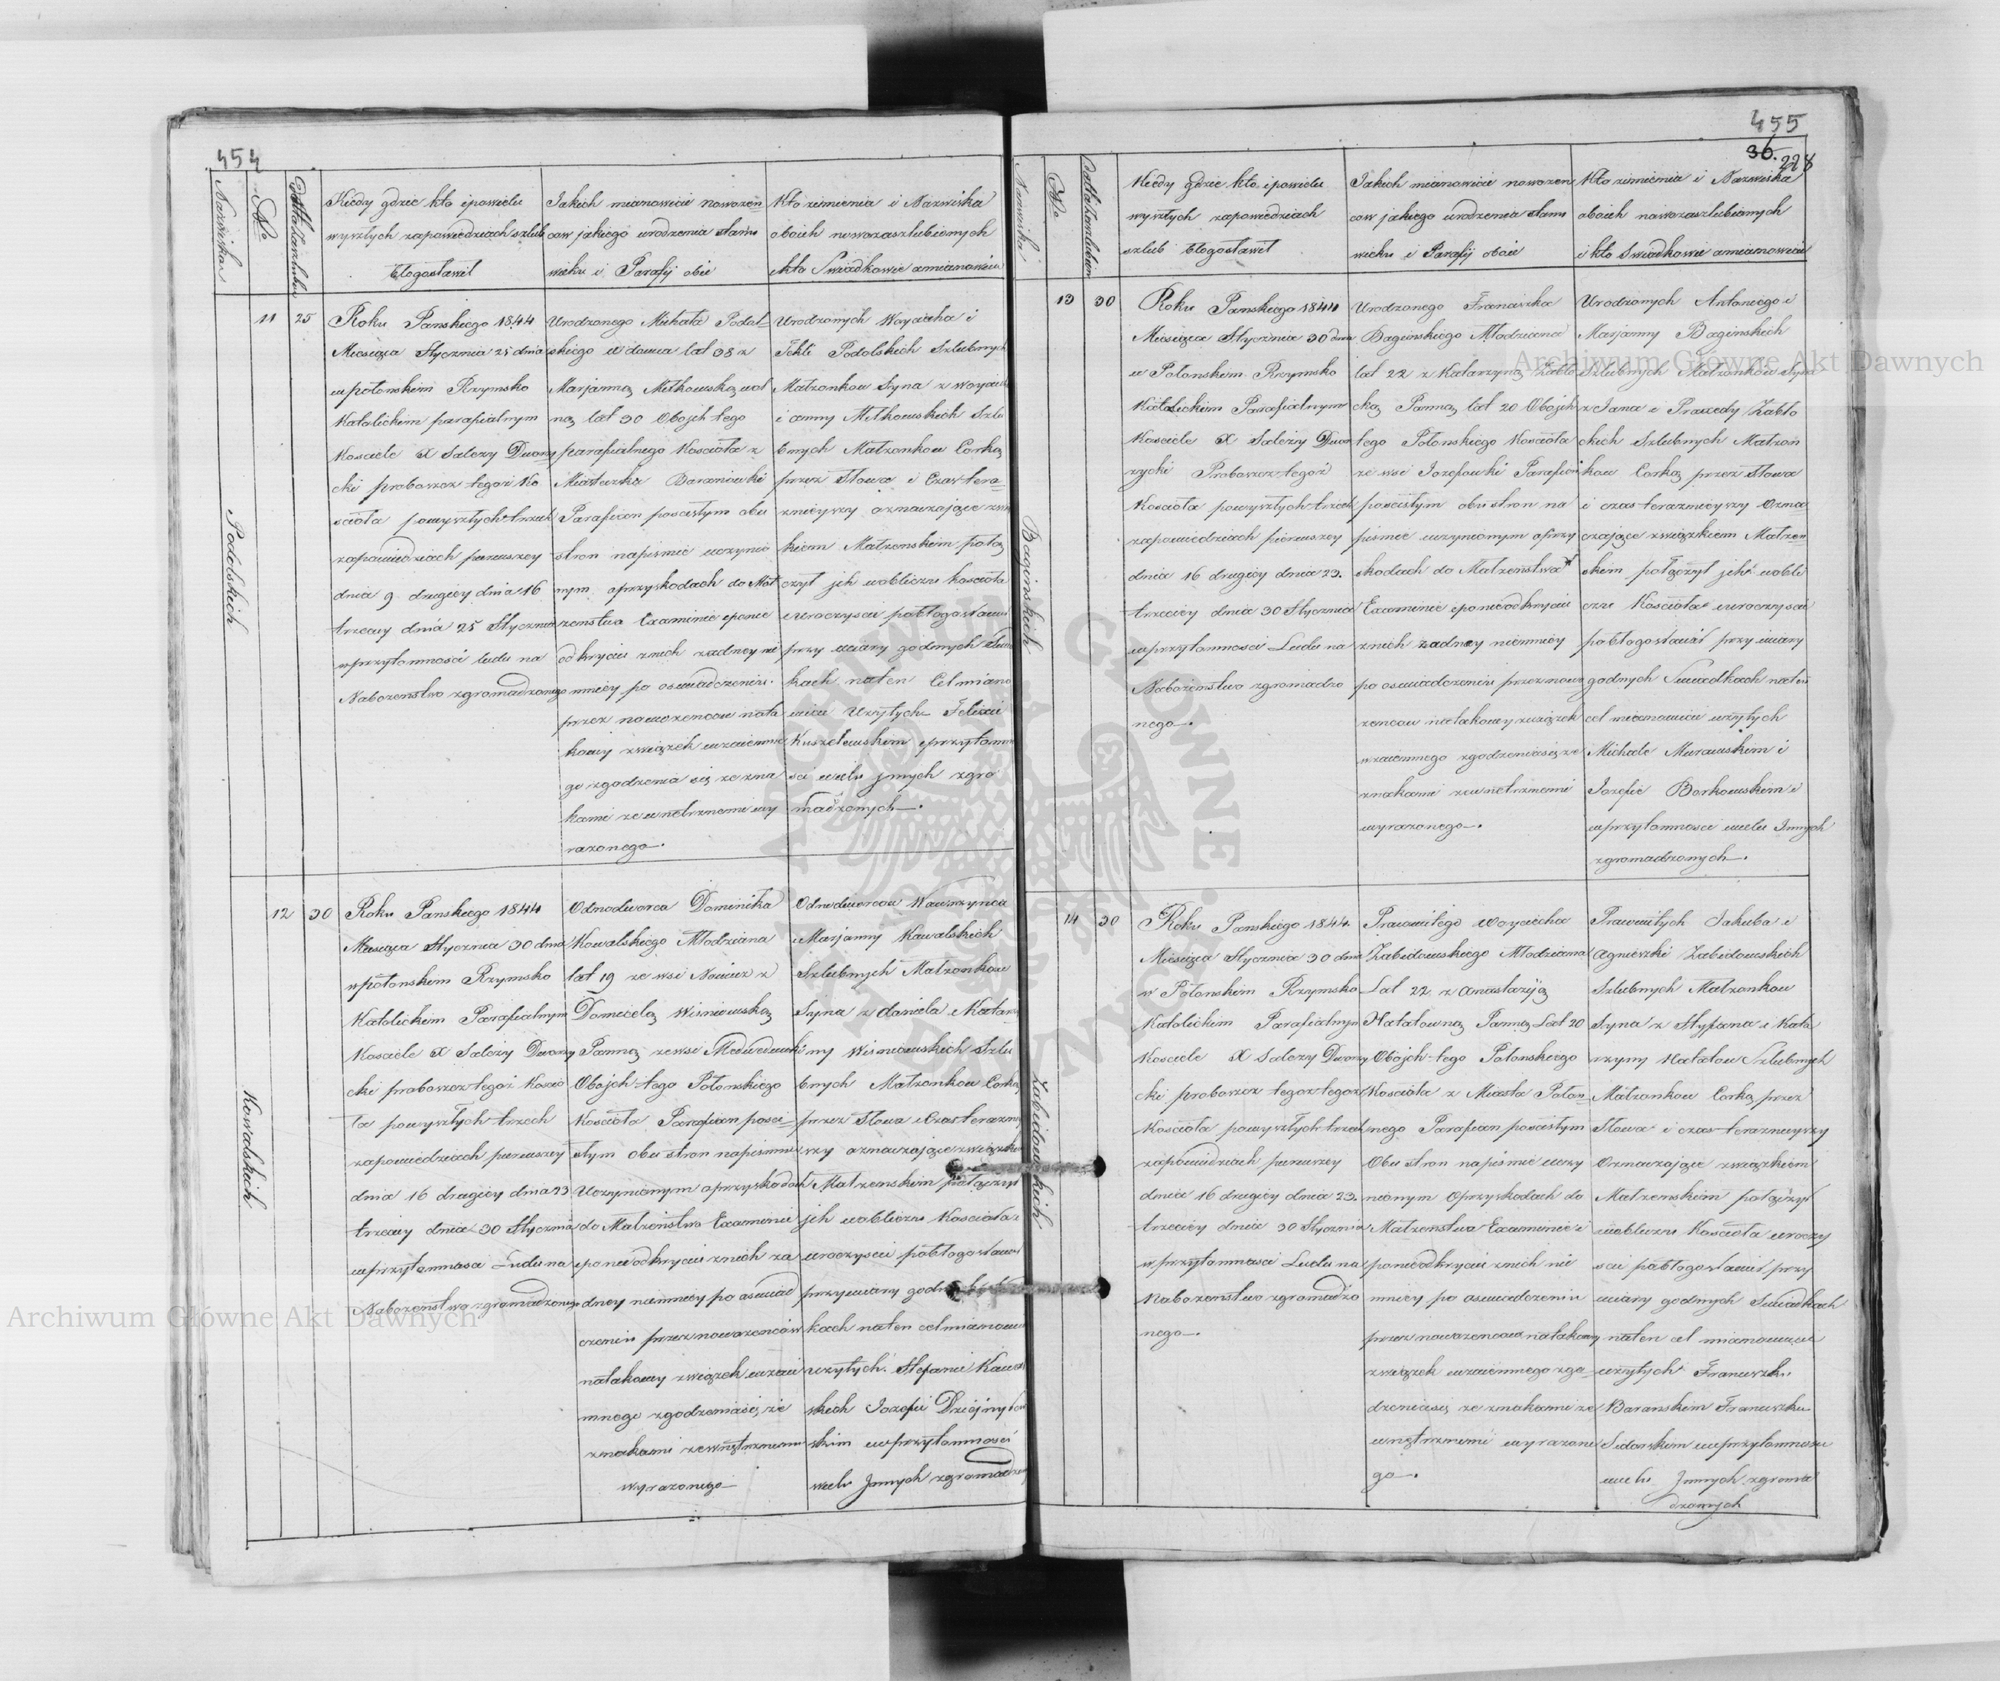 454
Nazwiska
No
Data ślubu
Kiedy gdzie kto i powielu
wyszłych zapowiedziach szlub
błogosławił
Jakich mianowicie nowożeń
ców jakiego urodzenia stanu
wieku i Parafij obie
Kto z imienia i Nazwiska
obojch nowozaszlubionych
i kto Swiadkowie a mianowicie
Podolskich
11
25
Roku Panskiego 1844
Miesiąca Stycznia 25 dnia
w połonskim Rzymsko
Katolickim parafialnym
Kosciele X Salezy Dwory
cki proboszcz tegoż Ko
scioła powyszłych trzech
zapowiedziach pierwszey
dnia 9 drugiey dnia 16
trzeciey dnia 25 Stycznia
w przytomnosci ludu na
Nabozenstwo zgromadzonego
Urodzonego Michała Podol-
skiego wdowca lat 38 z
Marjanną Miłkowską wol
ną lat 30 Obojch tego
parafialnego Koscioła z
Miasteczka Baranówki
Parafian poscisłym obu
stron napismie uczynio
nym o przyskodach do Mał
zenstwa Examinie i ponie
odkryciu znich zadney nie
mniey po oswiadczeniu
przez nowozencow nata
kowy związek wzaiemne
go zgodzenia się ze zna
kami zewnetrznemi wy
razonego.
Urodzonych Woyciecha i
Tekli Podolskich Szlubnych
Małzonkow Syna z Woyciech
i anny Miłkowskich Szlu
bnych Małzonkow Corką
przez Słowa i Czas tera-
znieyszy oznaczające zwią
kiem Małzenskim połą
czył jch wobliczu kosciola
i uroczyscie pobłogosławił
przy wiary godnych swiad
kach naten Cel miano
wicie Uzytych Felixie
Kuszelewskim i przytomno
sci wielu jnnych zgro
madzonych.
Kowalskich
12
30
Roku Panskiego 1844
Miesiąca Stycznia 30 dnia
w połonskim Rzymsko
Katolickim Parafialnym
Kosciele X Salezy Dwory
cki proboszcz tegoż Koscio
ła powyszłych trzech
zapowiedziach pierwszey
dnia 16 drugiey dnia 23
trzeciey dnia 30 Stycznia
w przytomnosci Ludu na
Nabozenstwo zgromadzonego
Odnodworca Dominika
Kowalskiego Młodziana
lat 19 ze wsi Nowicz z
Domicelą Wisniowską
Panną ze wsi Miedwiedowki
Obojch tego Połonskiego
Koscioła Parafian posci-
słym obu stron napismie
Uczynionym o przyskodach
do Małzenstwa Examinie
i ponie odkryciu znich za
dney niemniey po oswiad
czeniu przez nowozenców
natakowy związek wzaie
mnego zgodzenia się ze
znakami zewnętrznemi
wyrazonego
Odnodworcow Wawrzynca
i Marjanny Kowalskich
Szlubnych Małzonkow
Syna z daniela i Katarzy
ny Wisniowskich Szlu
bnych Małzonkow Corką
przez Słowa i Czas teraznie
yszy oznaczające związkiem
Małzenskim połączył
jch wobliczu Koscioła i
uroczyscie pobłogosławił
przy wiary godnych swiad
kach naten cel mianowicie
uzytych Stefanie Kowal
skich Jozefie
skim w przytomnosci
wielu Jnnych zgromadzonych
455
36.
228
Nazwiska
No
Data szlubu
Kiedy gdzie kto i powielu
wyszłych zapowiedziach
szlub błogosławił
Jakich mianowicie nowozen
cow jakiego urodzenia stanu
wieku i Parafij oboie
Kto z imienia i Nazwiska
obojch nowozaszlubionych
i kto Swiadkowie a mianowicie
Baginskich
13
30
Roku Panskiego 1844
Miesiąca Stycznia 30 dnia
w Połonskim Rzymsko
Katolickim Parafialnym
Kosciele X Salezy Dwo
rycki Proboszcz tegoż
Koscioła powyszłych trzech
zapowiedziach pierwszey
dnia 16 drugiey dnia 23.
trzeciey dnia 30 Stycznia
w przytomnosci Ludu na
Nabozenstwo zgromadzo
nego.
Urodzonego Franciszka
Baginskiego Młodziana
lat 22 z Katarzyną Zabło
cką Panną lat 20 Obojch
tego Połonskiego Koscioła
ze wsi Jozefowki Parafian
poscisłym obu stron na
pismie uczynionym o przy
skodach do Małzenstwa
Examinie i ponie odkryciu
znich zadney niemniey
po oswiadczeniu przez nowo
zencow natakowy związek
wzaiemnego zgodzenia się ze
znakami zewnetrznemi
wyrazonego.
Urodzonych Antoniego i
Marjanny Baginskich
Szlubnych Małzonkow Syna
z Jana i Praxedy Zabło
ckich Szlubnych Małzon
kow Corką przez Słowa
i czas teraznieyszy Ozna-
czające związkiem Małzen
skim połączył jch wobli
czu Koscioła i uroczyscie
pobłogosławił przy wiary
godnych Swiadkach naten
cel mianowicie uzytych
Michale Murawskim i
Jozefie Borkowskim i
w przytomnosci wielu Jnnych
zgromadzonych.
Zabidowskich
14
30
Roku Panskiego 1844.
Miesiąca Stycznia 30 dnia
w Połonskim Rzymsko
Katolickim Parafialnym
Kosciele X Salezy Dwory
cki proboszcz tegoz tegoz
Koscioła powyszłych trzech
zapowiedziach pierwszey
dnia 16 drugiey dnia 23.
trzeciey dnia 30 Stycznia
w przytomnosci Ludu na
Nabozenstwo zgromadzo
nego.
Pracowitego Woyciecha
Zabidowskiego Młodziana
Lat 22 z Anastazyją
Hałałowną Panną Lat 20
Obojch tego Połonskiego
Koscioła z Miasta Połon-
nego Parafian poscisłym
Obu stron napismie uczy
nionym O przyskodach do
Małzenstwa Examinie i
ponie odkryciu znich nie
mniey po oswiadczeniu
przez nowozencow natakowy
związek wzaiemnego zgo-
dzenia się ze znakami ze
wnętrznemi wyrazone
go.
Pracowitych Jakuba i
Agnieszki Zabidowskich
Szlubnych Małzonkow
Syna z Styfana i Kata
rzyny Hałałow Szlubnych
Małzonkow Corką przez
Słowa i czas teraznieyszy
Oznaczające związkiem
Małzenskim połączył
wobliczu Koscioła uroczy
scie pobłogosławił przy
wiary godnych Swiadkach
naten cel mianowicie
uzytych Franciszku
Baranskim Franciszku
Sidorskim w przytomnosci
wielu Jnnych zgroma
dzonych
Archiwum Główne Akt Dawnych
Archiwum Główne Akt Dawnych